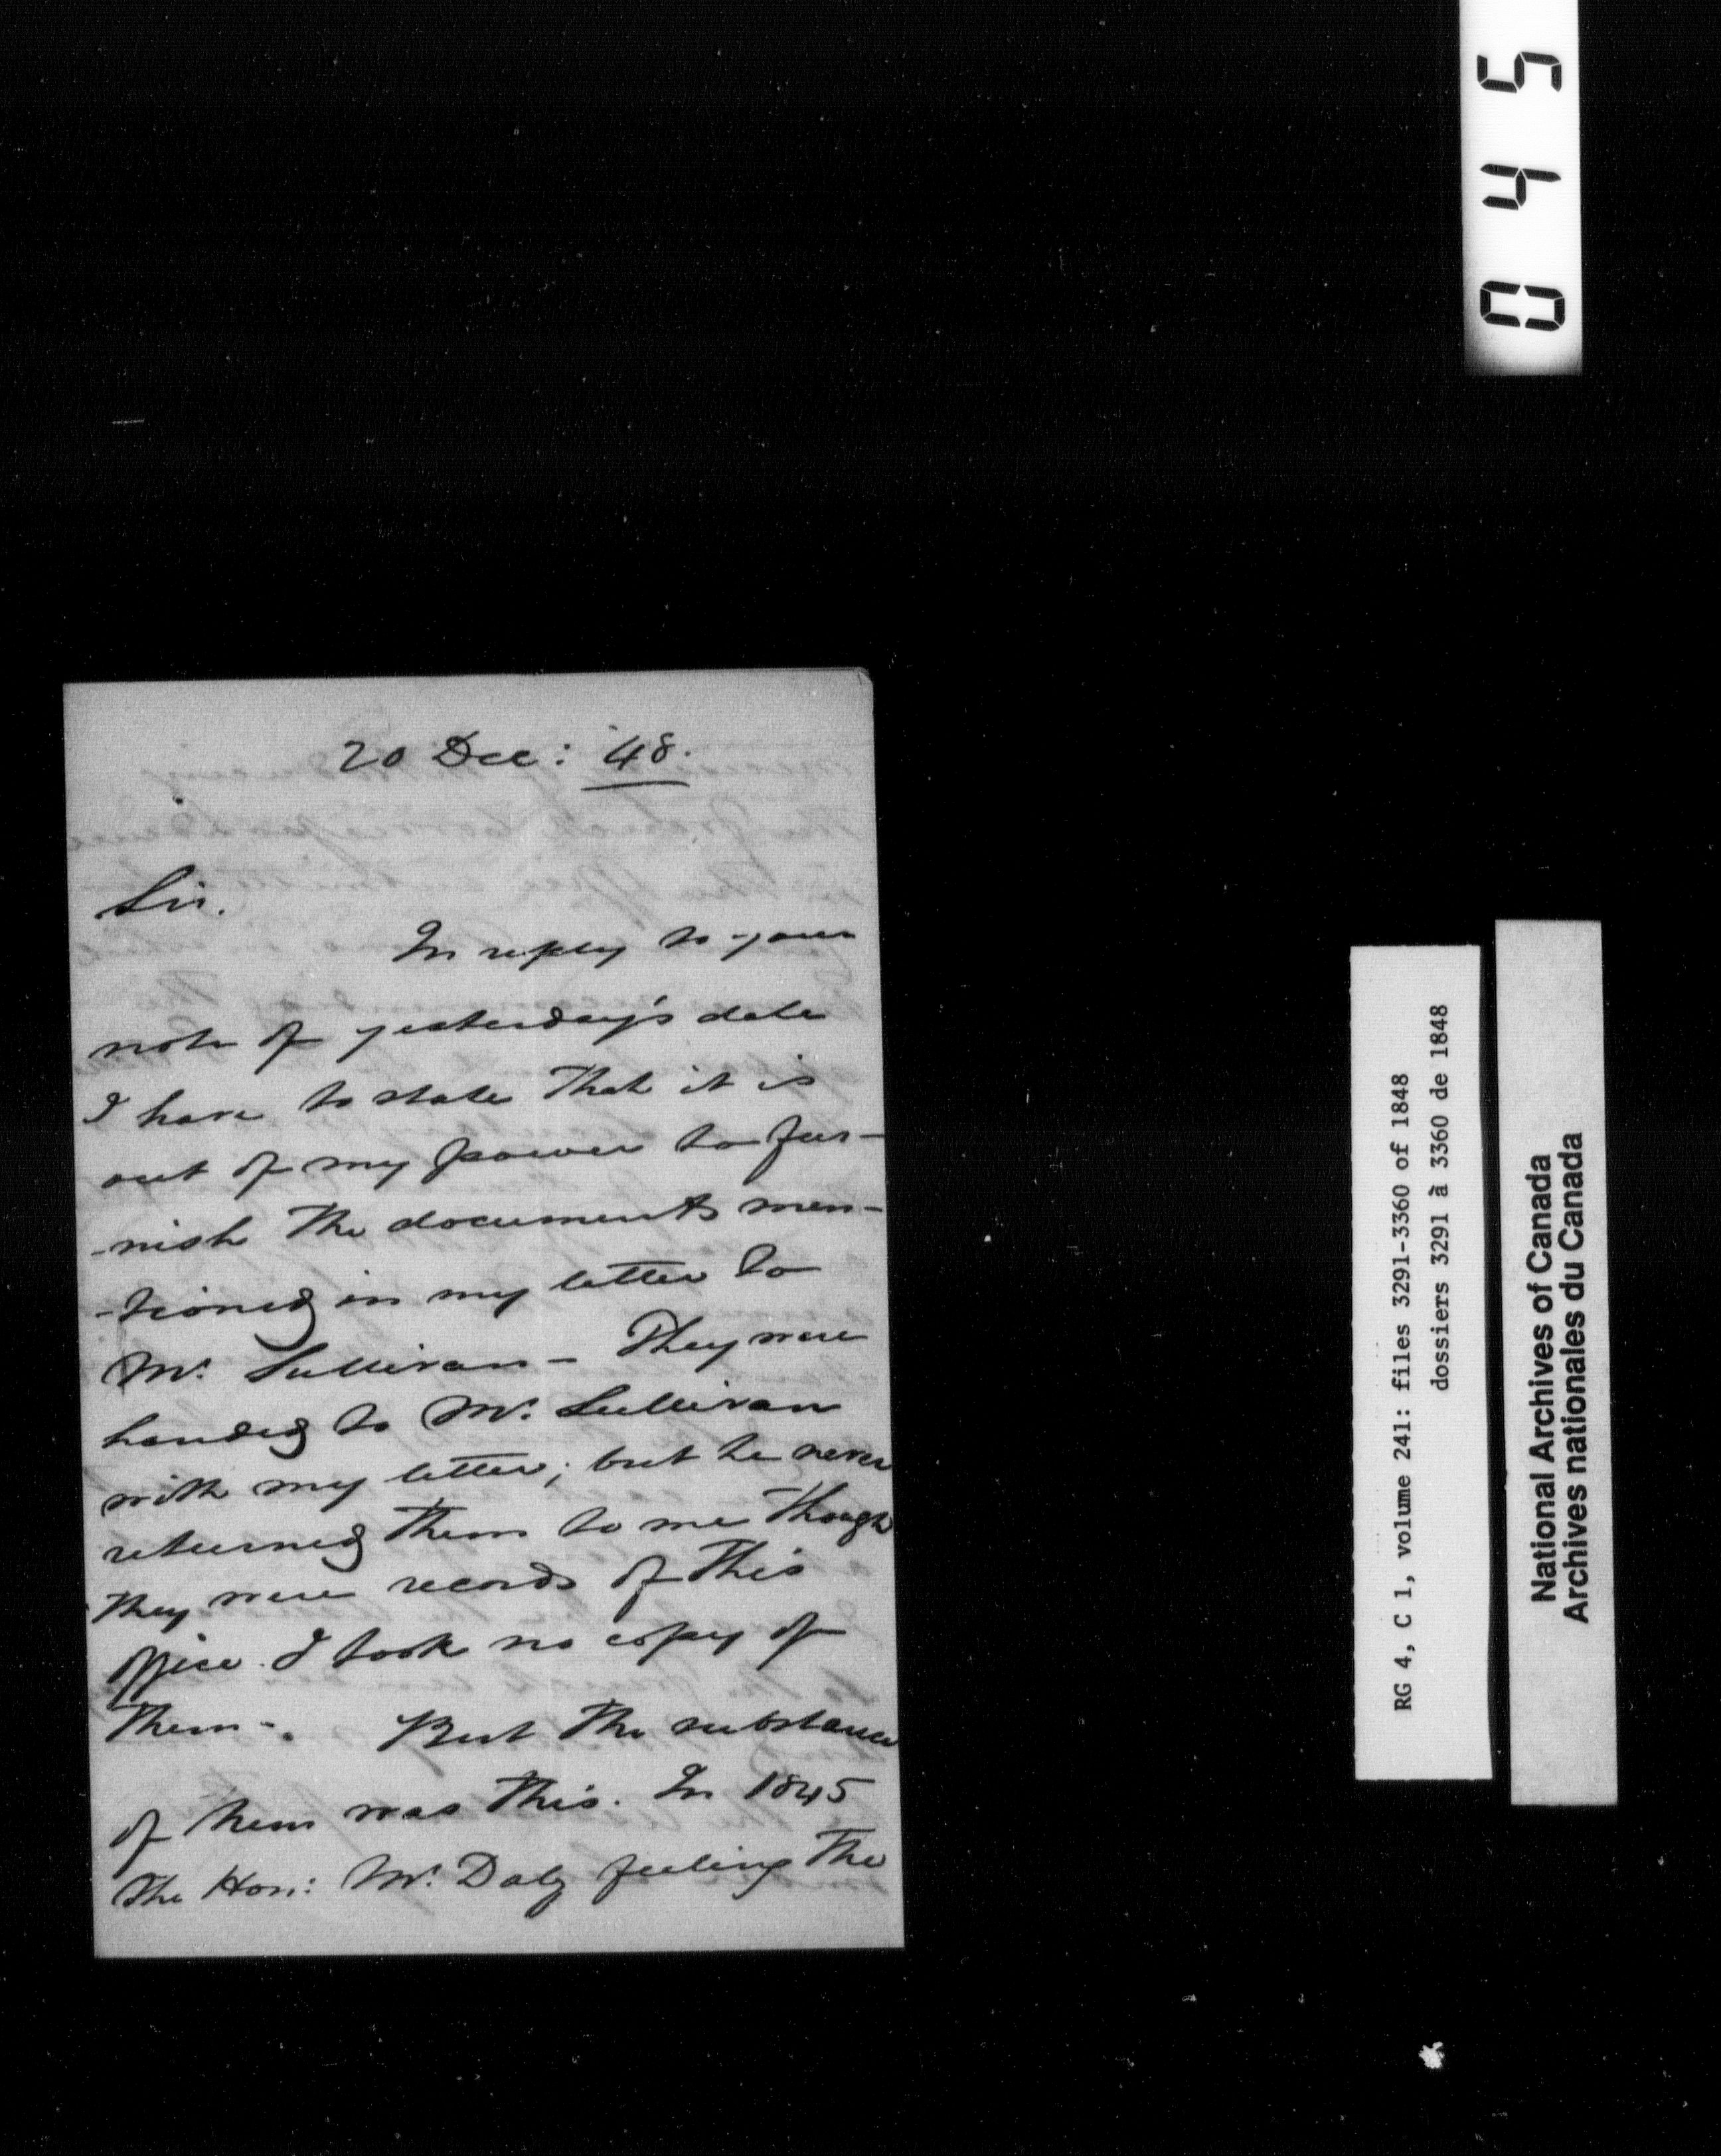 0 4 5
20 Dec: '48.
Sir.
In reply to your
note of yesterday's date
I have to state that it is
out of my power to fur-
-nish the documents men-
-tioned in my letter to
Mr. Sullivan - They were
handed to Mr. Sullivan
with my letter; but he never
returned them to me though
they were records of this
office. I took no copy of
them -. But the substance
of them was this. In 1845
the Hon: Mr. Daly feeling the
RG 4, C 1, volume 241: files 3291-3360 of 1848
dossiers 3291 à 3360 de 1848
National Archives of Canada
Archives nationales du Canada